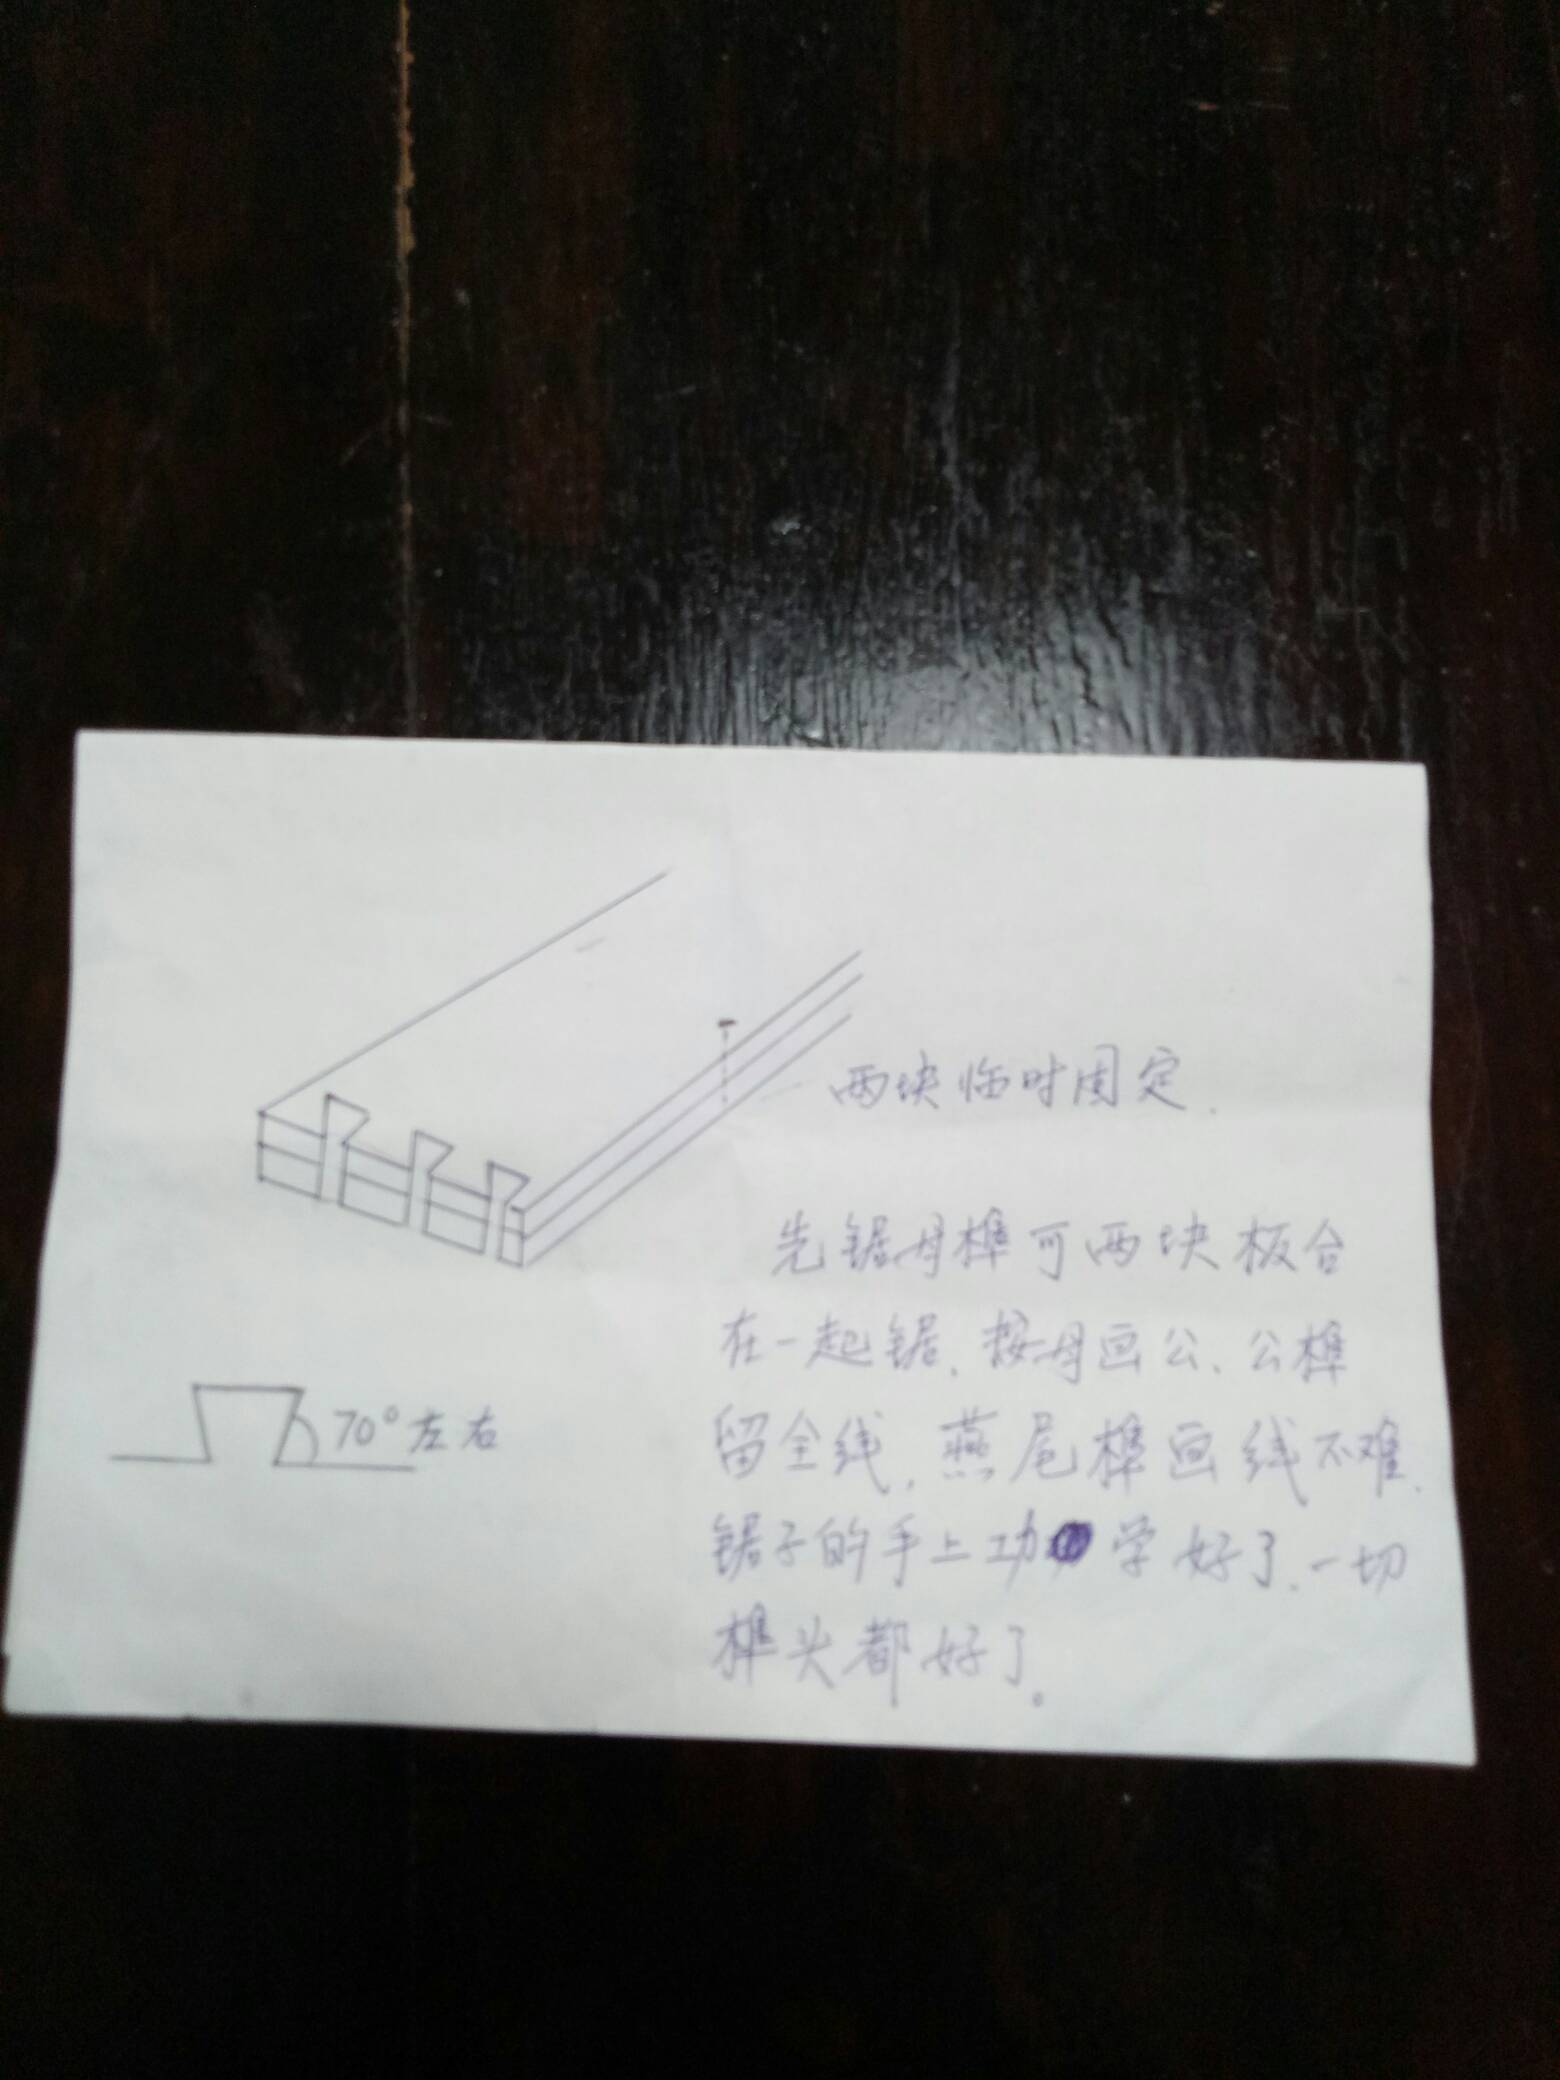 两块临时固定.
先锯母榫可两块板合
在一起锯.按母画公、公榫
70°左右
留全线,燕尾榫画线不难.
锯子的手上功学好了.一切
榫头都好了。